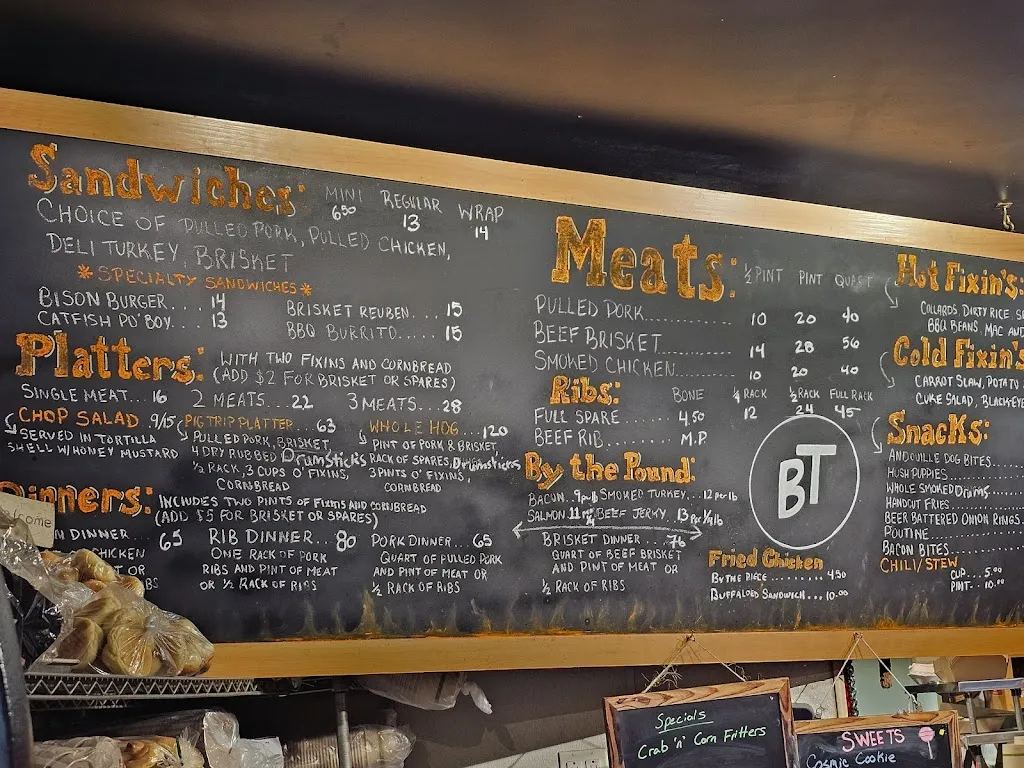 Sandwiches: MINI REGULAR WRAP
6.50 13 14
CHOICE OF PULLED PORK, PULLED CHICKEN,
DELI TURKEY, BRISKET
*SPECIALTY SANDWICHES*
BISON BURGER... 14
CATFISH PO'BOY... 13
BRISKET REUBEN.... 15
BBQ BURRITO..... 15
Platters: WITH TWO FIXINS AND CORNBREAD
(ADD $2 FOR BRISKET OR SPARES)
SINGLE MEAT... 16 2 MEATS... 22 3 MEATS... 28
CHOP SALAD 9/15
SERVED IN TORTILLA
SHELL W/HONEY MUSTARD
PIG TRIP PLATTER... 63
PULLED PORK, BRISKET
4 DRY RUBBED Drumsticks
1/2 RACK, 3 CUPS O' FIXINS,
CORNBREAD
WHOLE HOG... 120
PINT OF PORK & BRISKET
RACK OF SPARES, Drumsticks
3 PINTS O' FIXINS,
CORNBREAD
Dinners: INCLUDES TWO PINTS OF FIXINS AND CORNBREAD
(ADD $5 FOR BRISKET OR SPARES)
DINNER 65
CHICKEN
OR
RIB DINNER... 80
ONE RACK OF PORK
RIBS AND PINT OF MEAT
OR 1/2 RACK OF RIBS
PORK DINNER... 65
QUART OF PULLED PORK
AND PINT OF MEAT OR
1/2 RACK OF RIBS
Meats: 1/2 PINT PINT QUART
PULLED PORK... 10 20 40
BEEF BRISKET... 14 28 56
SMOKED CHICKEN... 10 20 40
Ribs: BONE 1/4 RACK 1/2 RACK FULL RACK
FULL SPARE 4.50 12 24 45
BEEF RIB M.P.
By the Pound:
BACON... SMOKED TURKEY... 12 per lb
SALMON BEEF JERKY 13 per 1/4 lb
BRISKET DINNER... 76
QUART OF BEEF BRISKET
AND PINT OF MEAT OR
1/2 RACK OF RIBS
BT
Fried Chicken
BY THE PIECE........ 4.50
BUFFALOED SANDWICH... 10.00
Hot Fixin's:
COLLARDS, DIRTY RICE,
BBQ BEANS, MAC
Cold Fixin's
CARROT SLAW, POTATO
CUKE SALAD, BLACK-EYE
Snacks:
ANDOUILLE DOG BITES...
HUSH PUPPIES...
WHOLE SMOKED Drums...
HANDCUT FRIES...
BEER BATTERED ONION RINGS
POUTINE...
BACON BITES...
CHILI/STEW
CUP... 5.00
PINT... 10.00
Specials
Crab 'n' Corn Fritters
SWEETS
Cosmic Cookie